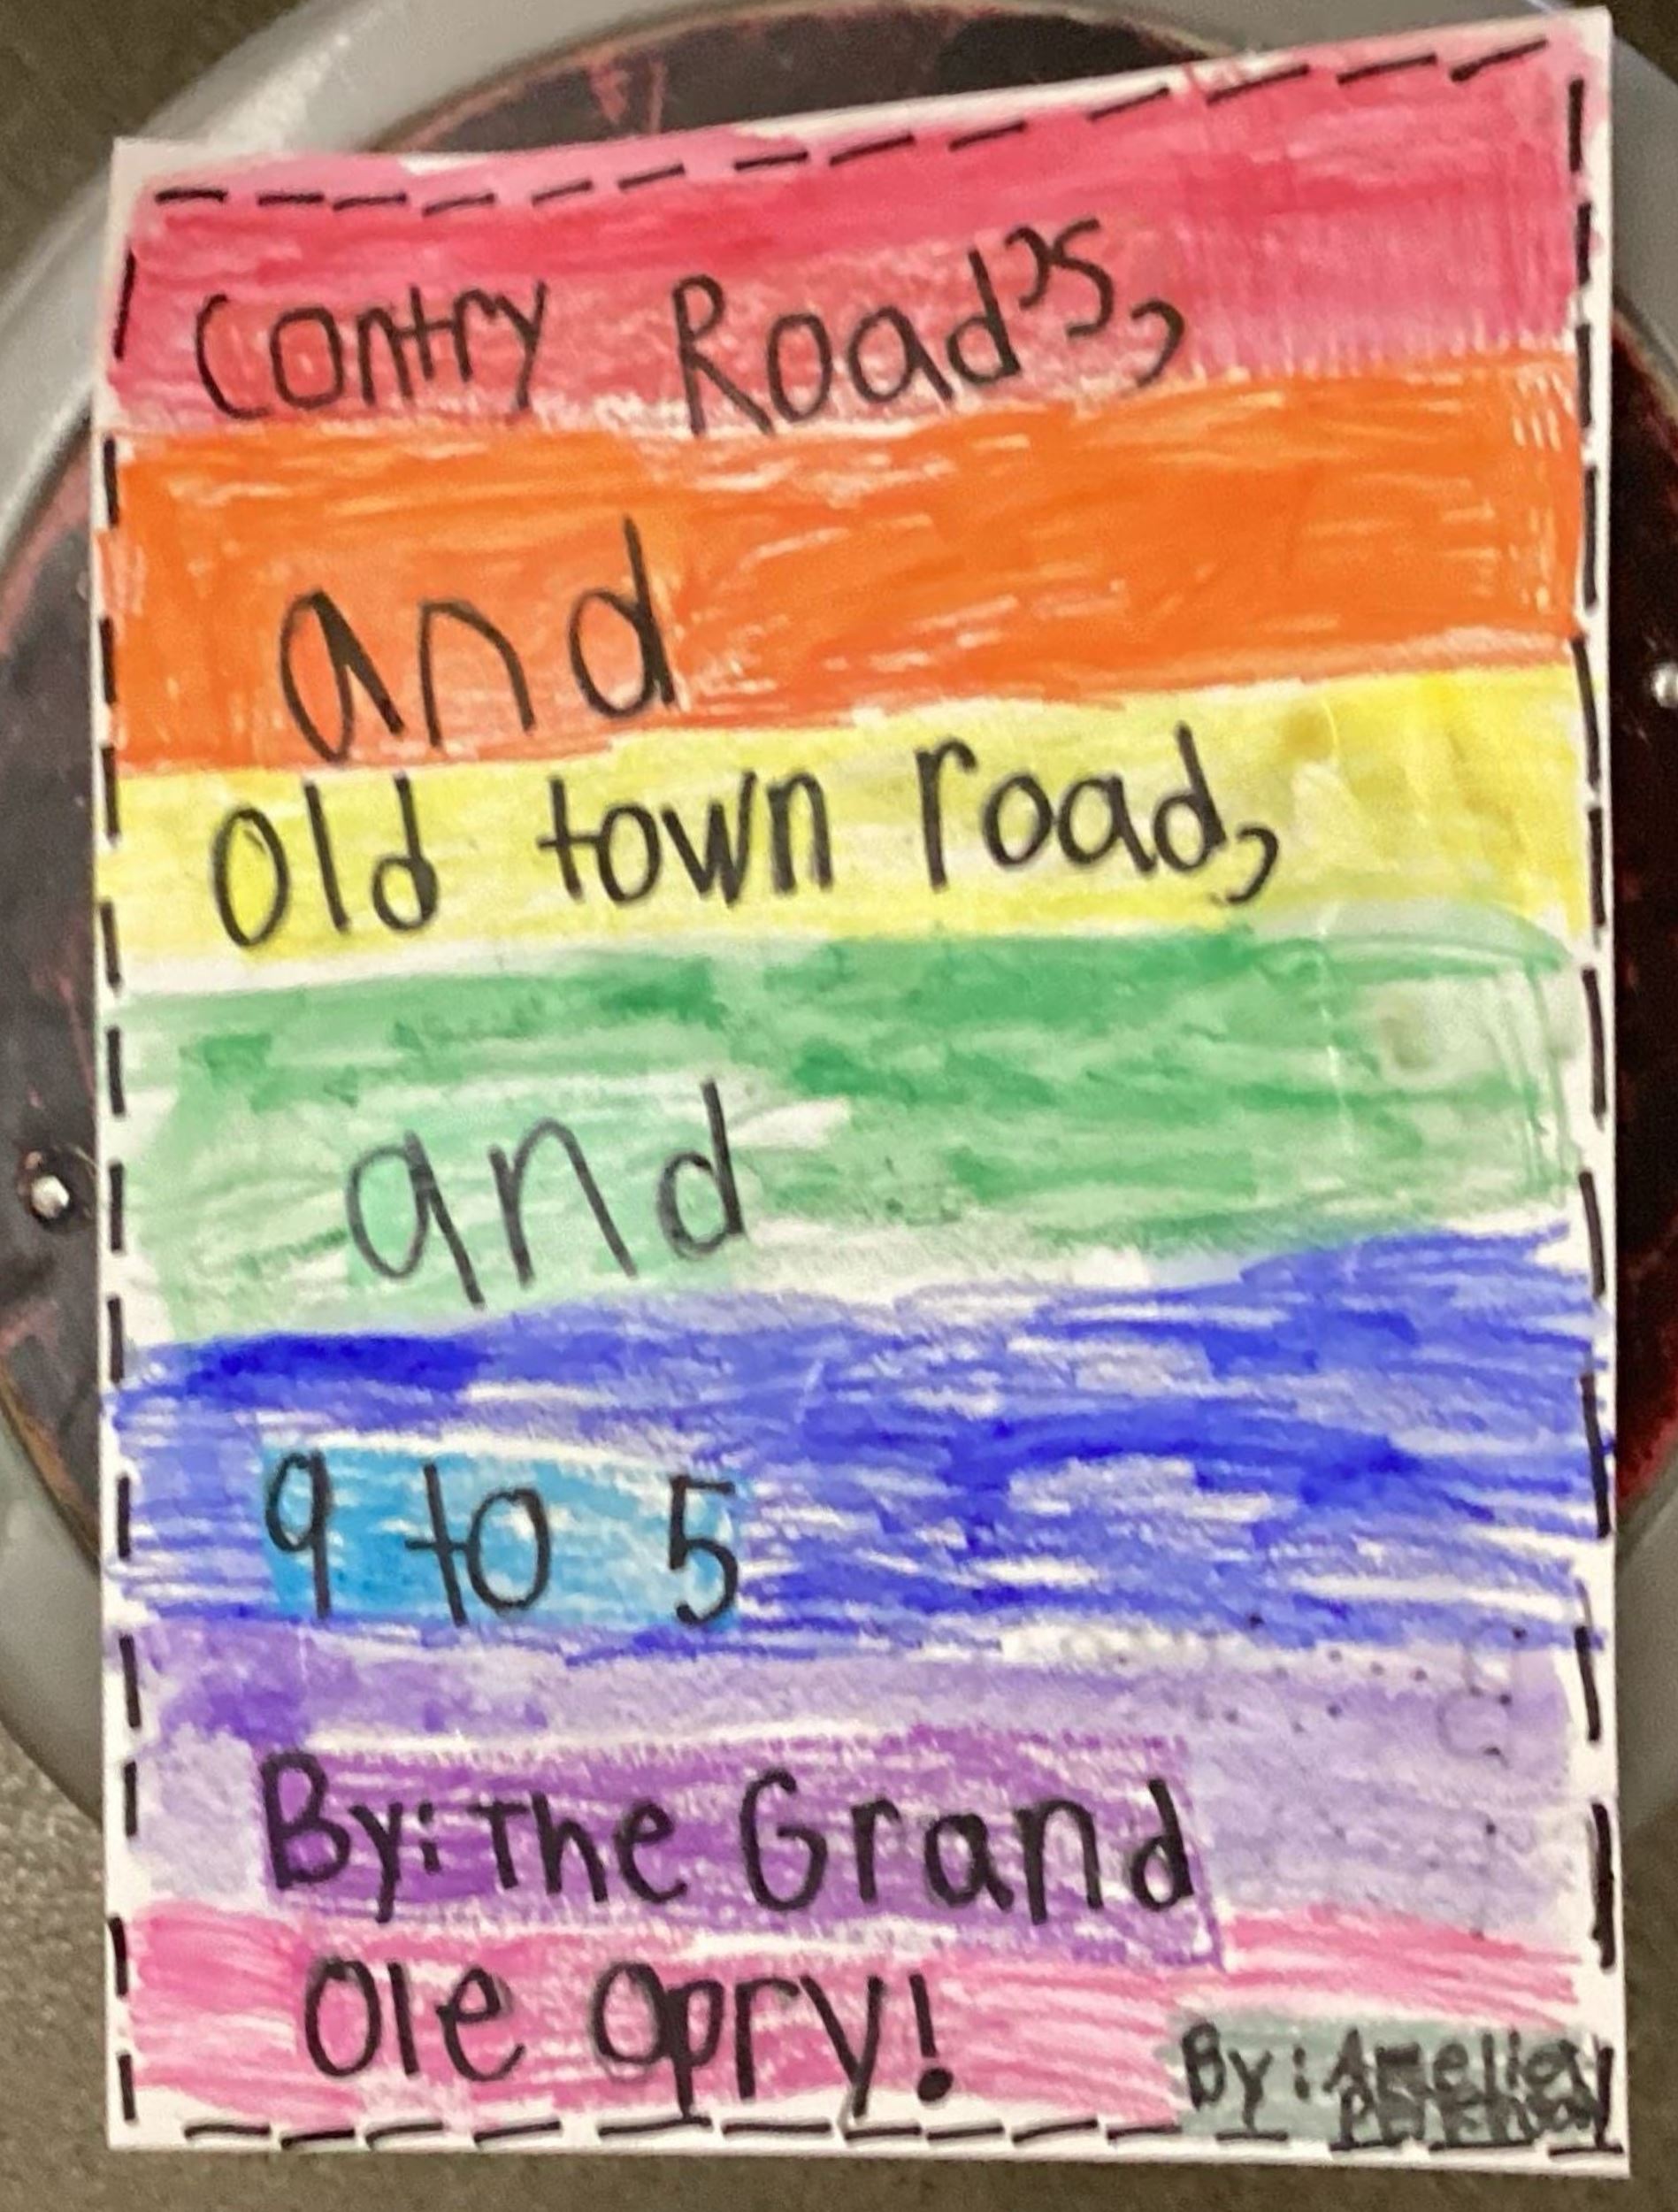 Contry Road's,
and
old town road,
and
9 to 5
By: The Grand
Ole Opry!
By: Amelia